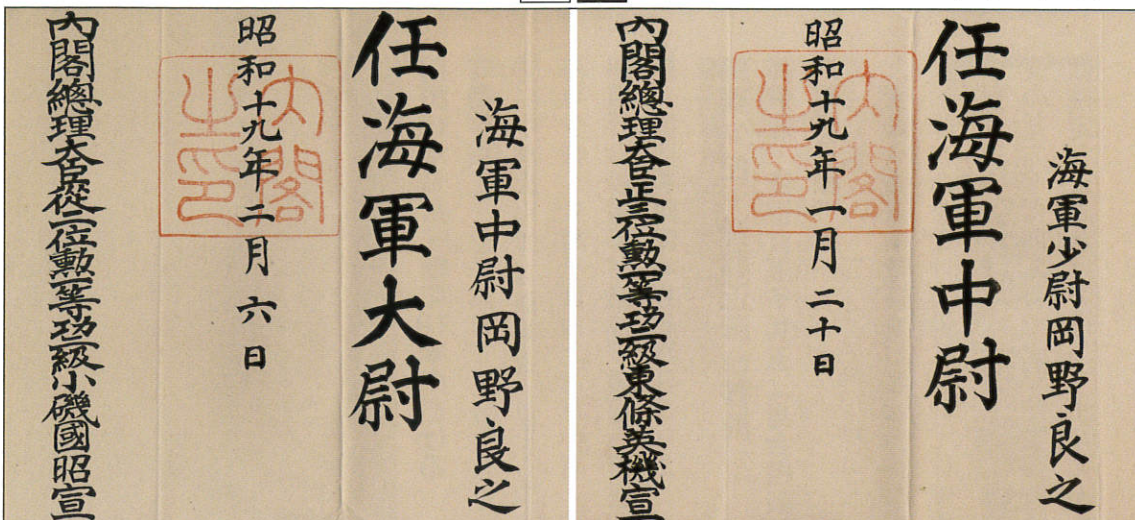 海軍少尉岡野良之
任海軍中尉
昭和十九年一月二十日
内閣之印
内閣總理大臣正三位勲一等功二級東條英機宣
海軍中尉岡野良之
任海軍大尉
昭和十九年二月六日
内閣之印
内閣總理大臣從二位勲一等功二級小磯國昭宣